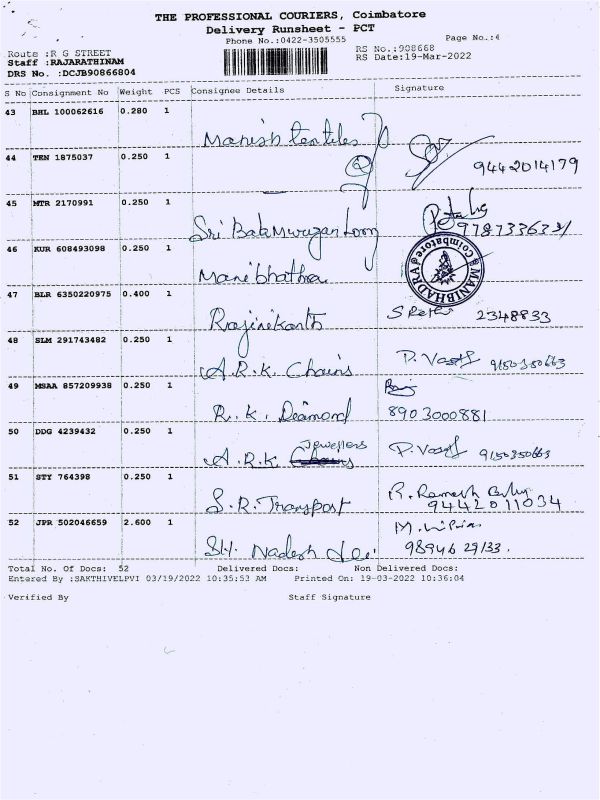 THE PROFESSIONAL COURIERS, Coimbatore
Delivery Runsheet - PCT
Phone No.:0422-3505555
Page No.:4
Route :R G STREET
RS No.:908668
Staff :RAJARATHINAM
RS Date:19-Mar-2022
DRS No. :DCJB90866804
S No Consignment No Weight PCS Consignee Details Signature
43 BHL 100062616 0.280 1 Manish textiles
44 TEN 1875037 0.250 1 9442014179
45 MTR 2170991 0.250 1 Sri Balamurugan
46 KUR 608493098 0.250 1 Manibhathra
Coimbatore MANIBHADRA
47 BLR 6350220975 0.400 1 Rajinikanth 2348833
48 SLM 291743482 0.250 1 A.R.K. Chains P. 9150350663
49 MSAA 857209938 0.250 1 R.K. Diamond 8903000881
50 DDG 4239432 0.250 1 A.R.K Jewellers P. 9150350663
51 STY 764398 0.250 1 S.R. Transport R. Ramesh 9442011034
52 JPR 502046659 2.600 1 M. 98946 29133.
Total No. Of Docs: 52 Delivered Docs: Non Delivered Docs:
Entered By :SAKTHIVELPVI 03/19/2022 10:35:53 AM Printed On: 19-03-2022 10:36:04
Verified By Staff Signature